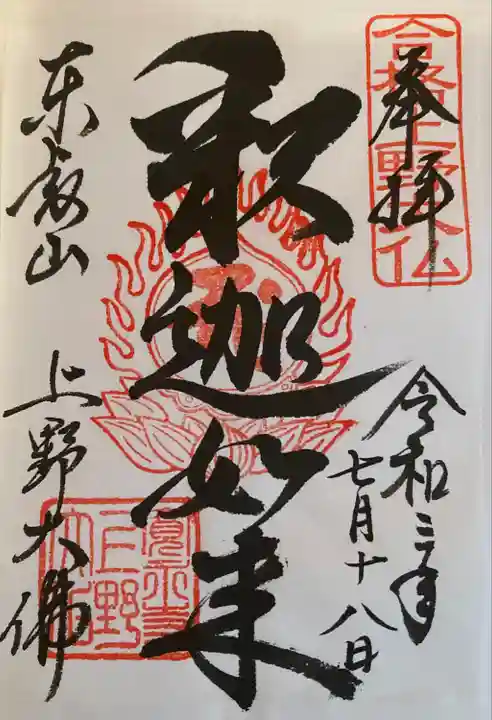 奉拝
合格上野大仏
令和三年
七月十八日
釈迦如来
東叡山
上野大佛